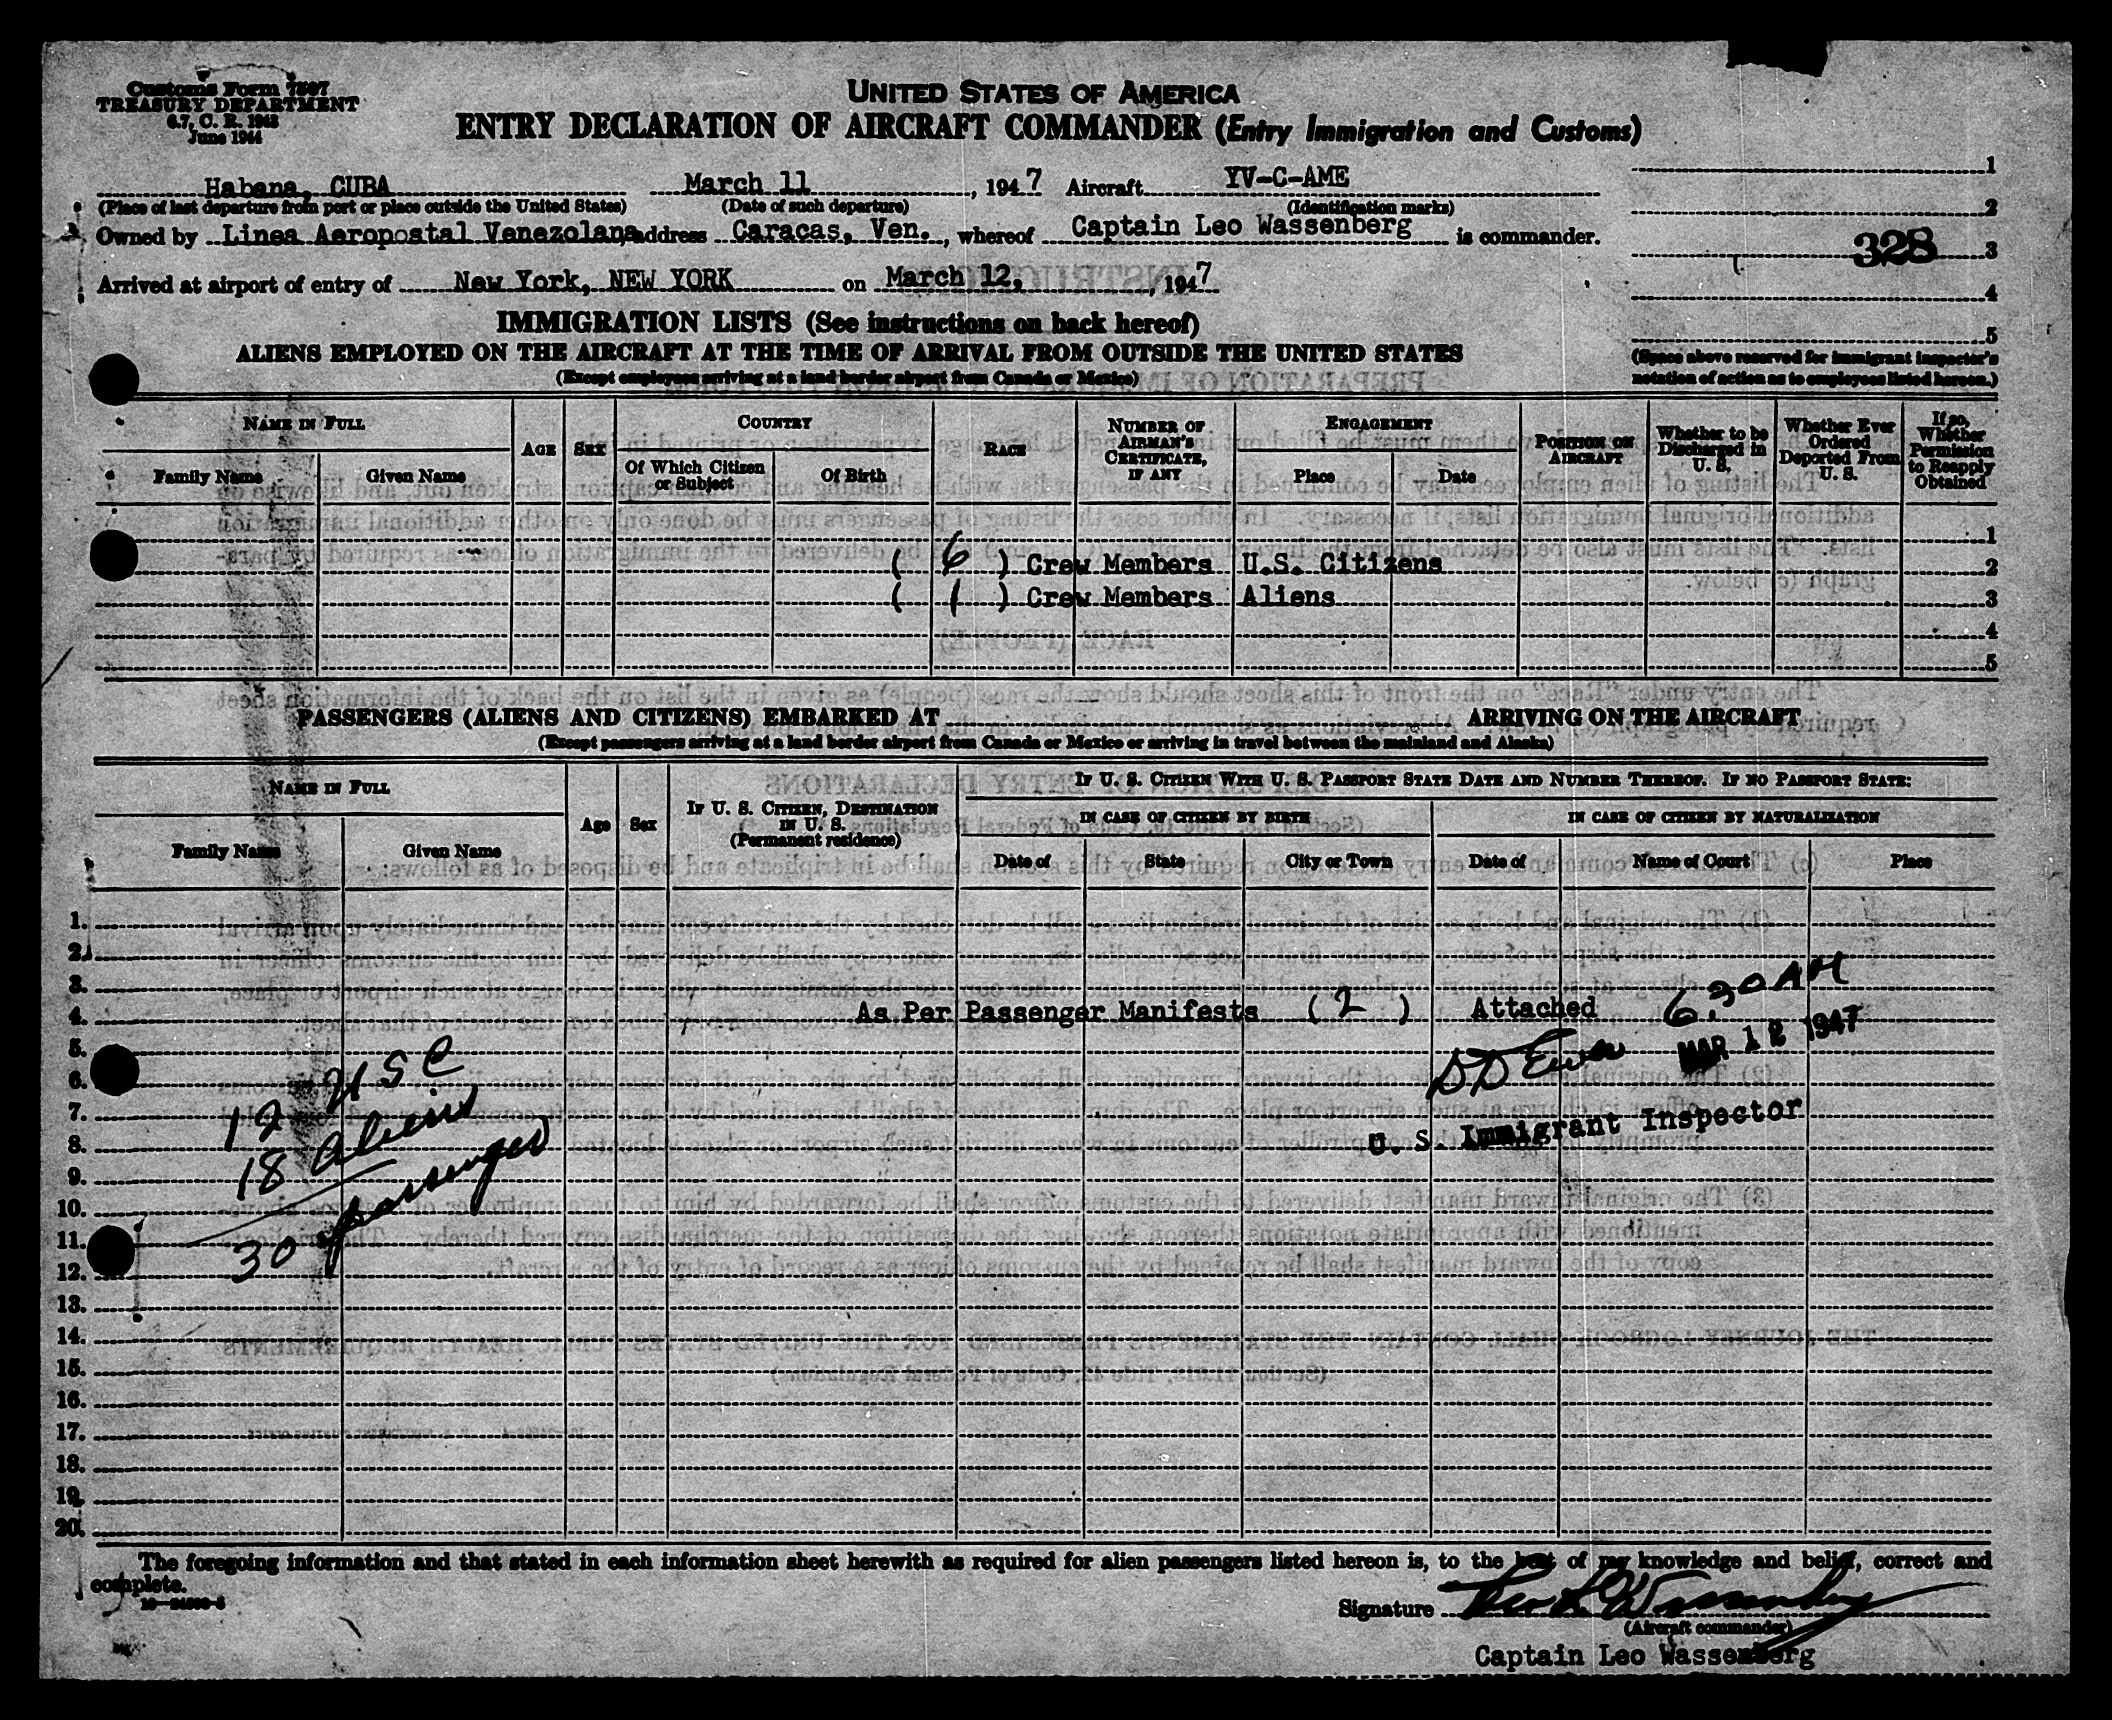 Customs Form 7507
TREASURY DEPARTMENT
6.7, C. R. 1943
June 1944
UNITED STATES OF AMERICA
ENTRY DECLARATION OF AIRCRAFT COMMANDER (Entry Immigration and Customs)
Habana, CUBA March 11, 1947 Aircraft YV-C-AME
(Place of last departure from port or place outside the United States) (Date of such departure) (Identification marks)
Owned by Linea Aeropostal Venezolana, address Caracas, Ven., whereof Captain Leo Wassenberg is commander.
Arrived at airport of entry of New York, NEW YORK on March 12, 1947
1
2
328 3
4
5
(Space above reserved for immigrant inspector's
notation of action as to employees listed hereon.)
IMMIGRATION LISTS (See instructions on back hereof)
ALIENS EMPLOYED ON THE AIRCRAFT AT THE TIME OF ARRIVAL FROM OUTSIDE THE UNITED STATES
(Except employees arriving at a land border airport from Canada or Mexico)
NAME IN FULL
Family Name Given Name
AGE
SEX
COUNTRY
Of Which Citizen or Subject
Of Birth
RACE
NUMBER OF AIRMAN'S CERTIFICATE, IF ANY
ENGAGEMENT
Place Date
POSITION ON AIRCRAFT
Whether to be Discharged in U. S.
Whether Ever Ordered Deported From U. S.
If so, Whether Permission to Reapply Obtained
1
( 6 ) Crew Members U.S. Citizens 2
( 1 ) Crew Members Aliens 3
4
5
PASSENGERS (ALIENS AND CITIZENS) EMBARKED AT ARRIVING ON THE AIRCRAFT
(Except passengers arriving at a land border airport from Canada or Mexico or arriving in travel between the mainland and Alaska)
NAME IN FULL
Family Name Given Name
Age
Sex
IF U. S. CITIZEN, DESTINATION IN U. S.
(Permanent residence)
IF U. S. CITIZEN WITH U. S. PASSPORT STATE DATE AND NUMBER THEREOF. IF NO PASSPORT STATE:
IN CASE OF CITIZEN BY BIRTH IN CASE OF CITIZEN BY NATURALIZATION
Date of State City or Town Date of Name of Court Place
1.
2.
3.
4. As Per Passenger Manifests ( 2 ) Attached 6:30 AM
MAR 12 1947
5.
6.
12 USC
7.
U. S. Immigrant Inspector
8.
18 Aliens
9.
10.
11.
30 passenger
12.
13.
14.
15.
16.
17.
18.
19.
20.
The foregoing information and that stated in each information sheet herewith as required for alien passengers listed hereon is, to the best of my knowledge and belief, correct and
complete.
Signature Leo L Wassenberg
(Aircraft commander)
Captain Leo Wassenberg